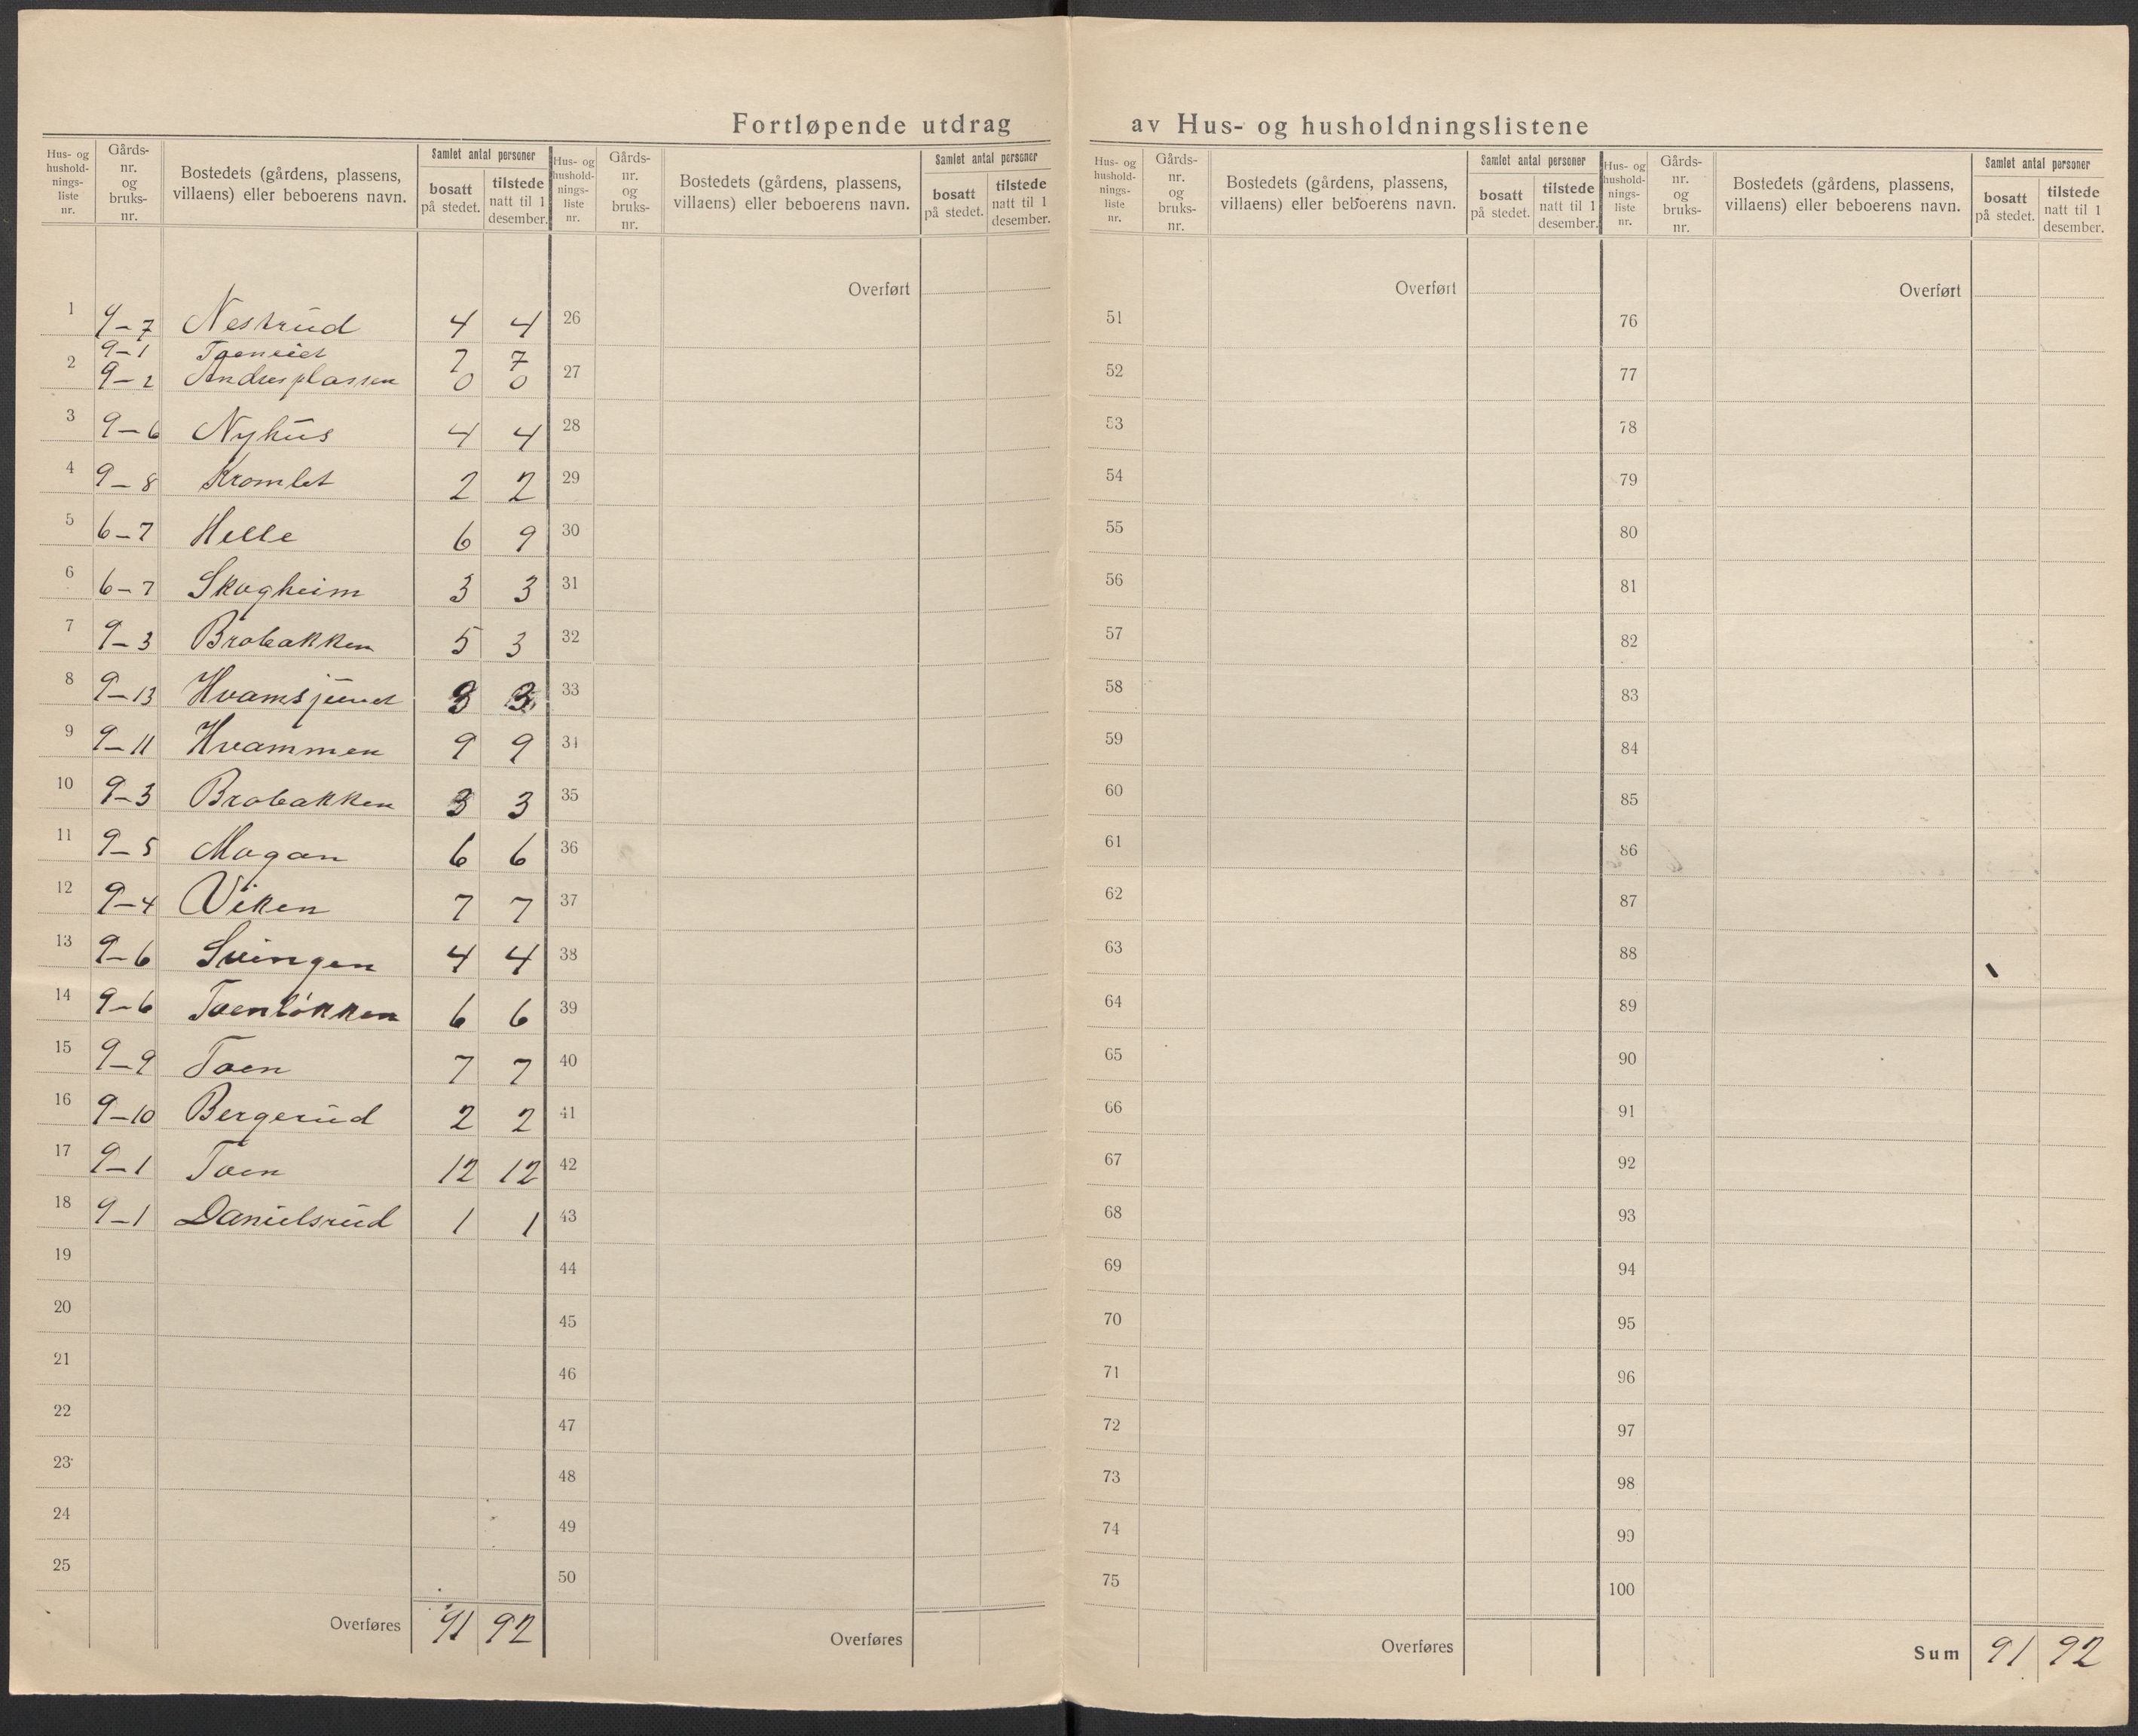 Fortløpende utdrag av Hus- og husholdningslistene
Hus- og hushold-nings-liste nr. Gårds-nr. og bruks-nr. Bostedets (gårdens, plassens, villaens) eller beboerens navn. Samlet antal personer bosatt på stedet. tilstede natt til 1 desember.
1 9-7 Nestrud 4 4
2 9-1 7 7
9-2 Andersplassen 0 0
3 9-6 Nyhus 4 4
4 9-8 Kromlet 2 2
5 6-7 Helle 6 9
6 6-7 Skogheim 3 3
7 9-3 Brobakken 5 3
8 9-13 3 3
9 9-11 Hvammen 9 9
10 9-3 Brobakken 3 3
11 9-5 Mogan 6 6
12 9-4 Viken 7 7
13 9-6 Svingen 4 4
14 9-6 Toenløkken 6 6
15 9-9 Toen 7 7
16 9-10 Bergerud 2 2
17 9-1 Toen 12 12
18 9-1 Danielsrud 1 1
19
20
21
22
23
24
25
Overføres 91 92
Hus- og hushold-nings-liste nr. Gårds-nr. og bruks-nr. Bostedets (gårdens, plassens, villaens) eller beboerens navn. Samlet antal personer bosatt på stedet. tilstede natt til 1 desember.
Overført
26
27
28
29
30
31
32
33
34
35
36
37
38
39
40
41
42
43
44
45
46
47
48
49
50
Overføres
Hus- og hushold-nings-liste nr. Gårds-nr. og bruks-nr. Bostedets (gårdens, plassens, villaens) eller beboerens navn. Samlet antal personer bosatt på stedet. tilstede natt til 1 desember.
Overført
51
52
53
54
55
56
57
58
59
60
61
62
63
64
65
66
67
68
69
70
71
72
73
74
75
Overføres
Hus- og hushold-nings-liste nr. Gårds-nr. og bruks-nr. Bostedets (gårdens, plassens, villaens) eller beboerens navn. Samlet antal personer bosatt på stedet. tilstede natt til 1 desember.
Overført
76
77
78
79
80
81
82
83
84
85
86
87
88
89
90
91
92
93
94
95
96
97
98
99
100
Sum 91 92